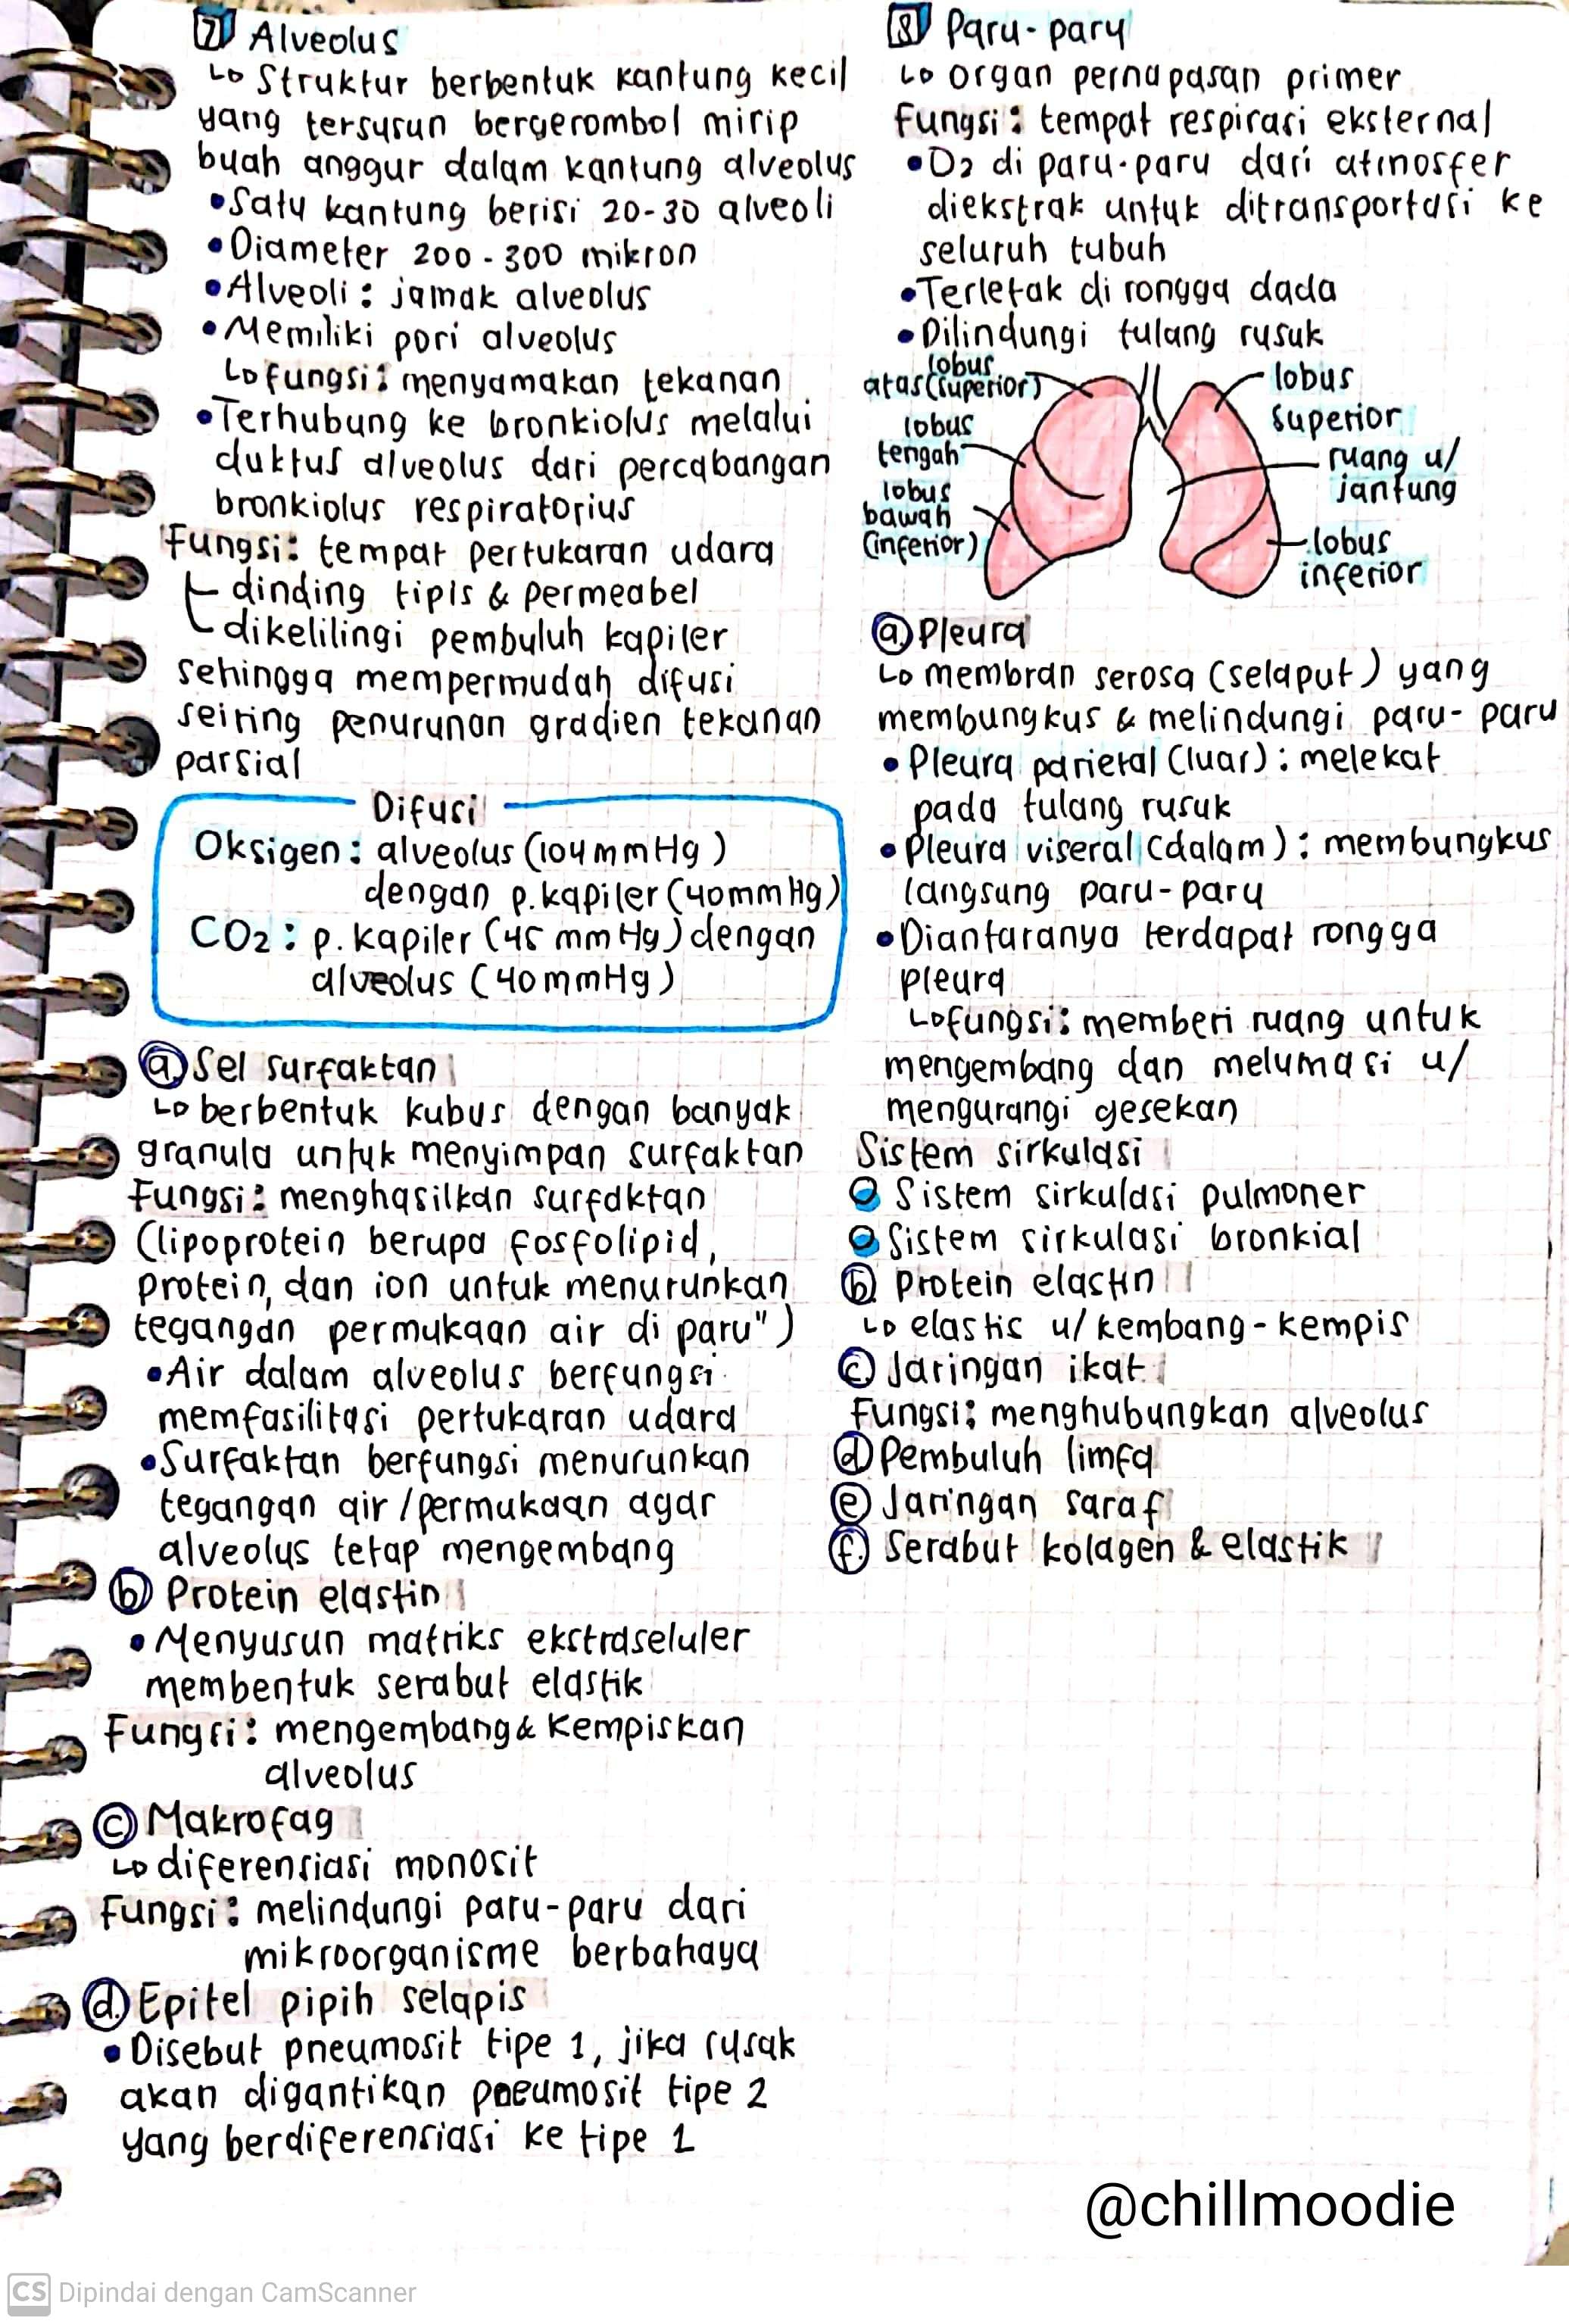 7 Alveolus
↳ Struktur berbentuk kantung kecil
yang tersusun bergerombol mirip
buah anggur dalam kantung alveolus
• Satu kantung berisi 20-30 alveoli
• Diameter 200-300 mikron
• Alveoli : jamak alveolus
• Memiliki pori alveolus
↳ fungsi : menyamakan tekanan
• Terhubung ke bronkiolus melalui
duktus alveolus dari percabangan
bronkiolus respiratorius
Fungsi : tempat pertukaran udara
dinding tipis & permeabel
dikelilingi pembuluh kapiler
sehingga mempermudah difusi
seiring penurunan gradien tekanan
parsial
Difusi
Oksigen : alveolus (104 mmHg)
dengan p. kapiler (40 mmHg)
CO2 : p. kapiler (45 mmHg) dengan
alveolus (40 mmHg)
a. Sel surfaktan
↳ berbentuk kubus dengan banyak
granula untuk menyimpan surfaktan
Fungsi : menghasilkan surfaktan
(lipoprotein berupa fosfolipid,
protein, dan ion untuk menurunkan
tegangan permukaan air di paru")
• Air dalam alveolus berfungsi
memfasilitasi pertukaran udara
• Surfaktan berfungsi menurunkan
tegangan air / permukaan agar
alveolus tetap mengembang
b. Protein elastin
• Menyusun matriks ekstraseluler
membentuk serabut elastik
Fungsi : mengembang & kempiskan
alveolus
c. Makrofag
↳ diferensiasi monosit
Fungsi : melindungi paru-paru dari
mikroorganisme berbahaya
d. Epitel pipih selapis
• Disebut pneumosit tipe 1, jika rusak
akan digantikan pneumosit tipe 2
yang berdiferensiasi ke tipe 1
8 Paru-paru
↳ organ pernapasan primer
Fungsi : tempat respirasi eksternal
• O2 di paru-paru dari atmosfer
diekstrak untuk ditransportasi ke
seluruh tubuh
• Terletak di rongga dada
• Dilindungi tulang rusuk
lobus
atas (superior)
lobus
tengah
lobus
bawah
(inferior)
lobus
superior
ruang u/
jantung
lobus
inferior
a. Pleura
↳ membran serosa (selaput) yang
membungkus & melindungi paru-paru
• Pleura parietal (luar) : melekat
pada tulang rusuk
• Pleura viseral (dalam) : membungkus
langsung paru-paru
• Diantaranya terdapat rongga
pleura
↳ fungsi : memberi ruang untuk
mengembang dan melumasi u/
mengurangi gesekan
Sistem sirkulasi
Sistem sirkulasi pulmoner
Sistem sirkulasi bronkial
b. Protein elastin
↳ elastis u/ kembang-kempis
c. Jaringan ikat
Fungsi : menghubungkan alveolus
d. Pembuluh limfa
e. Jaringan saraf
f. Serabut kolagen & elastik
@chillmoodie
CS Dipindai dengan CamScanner